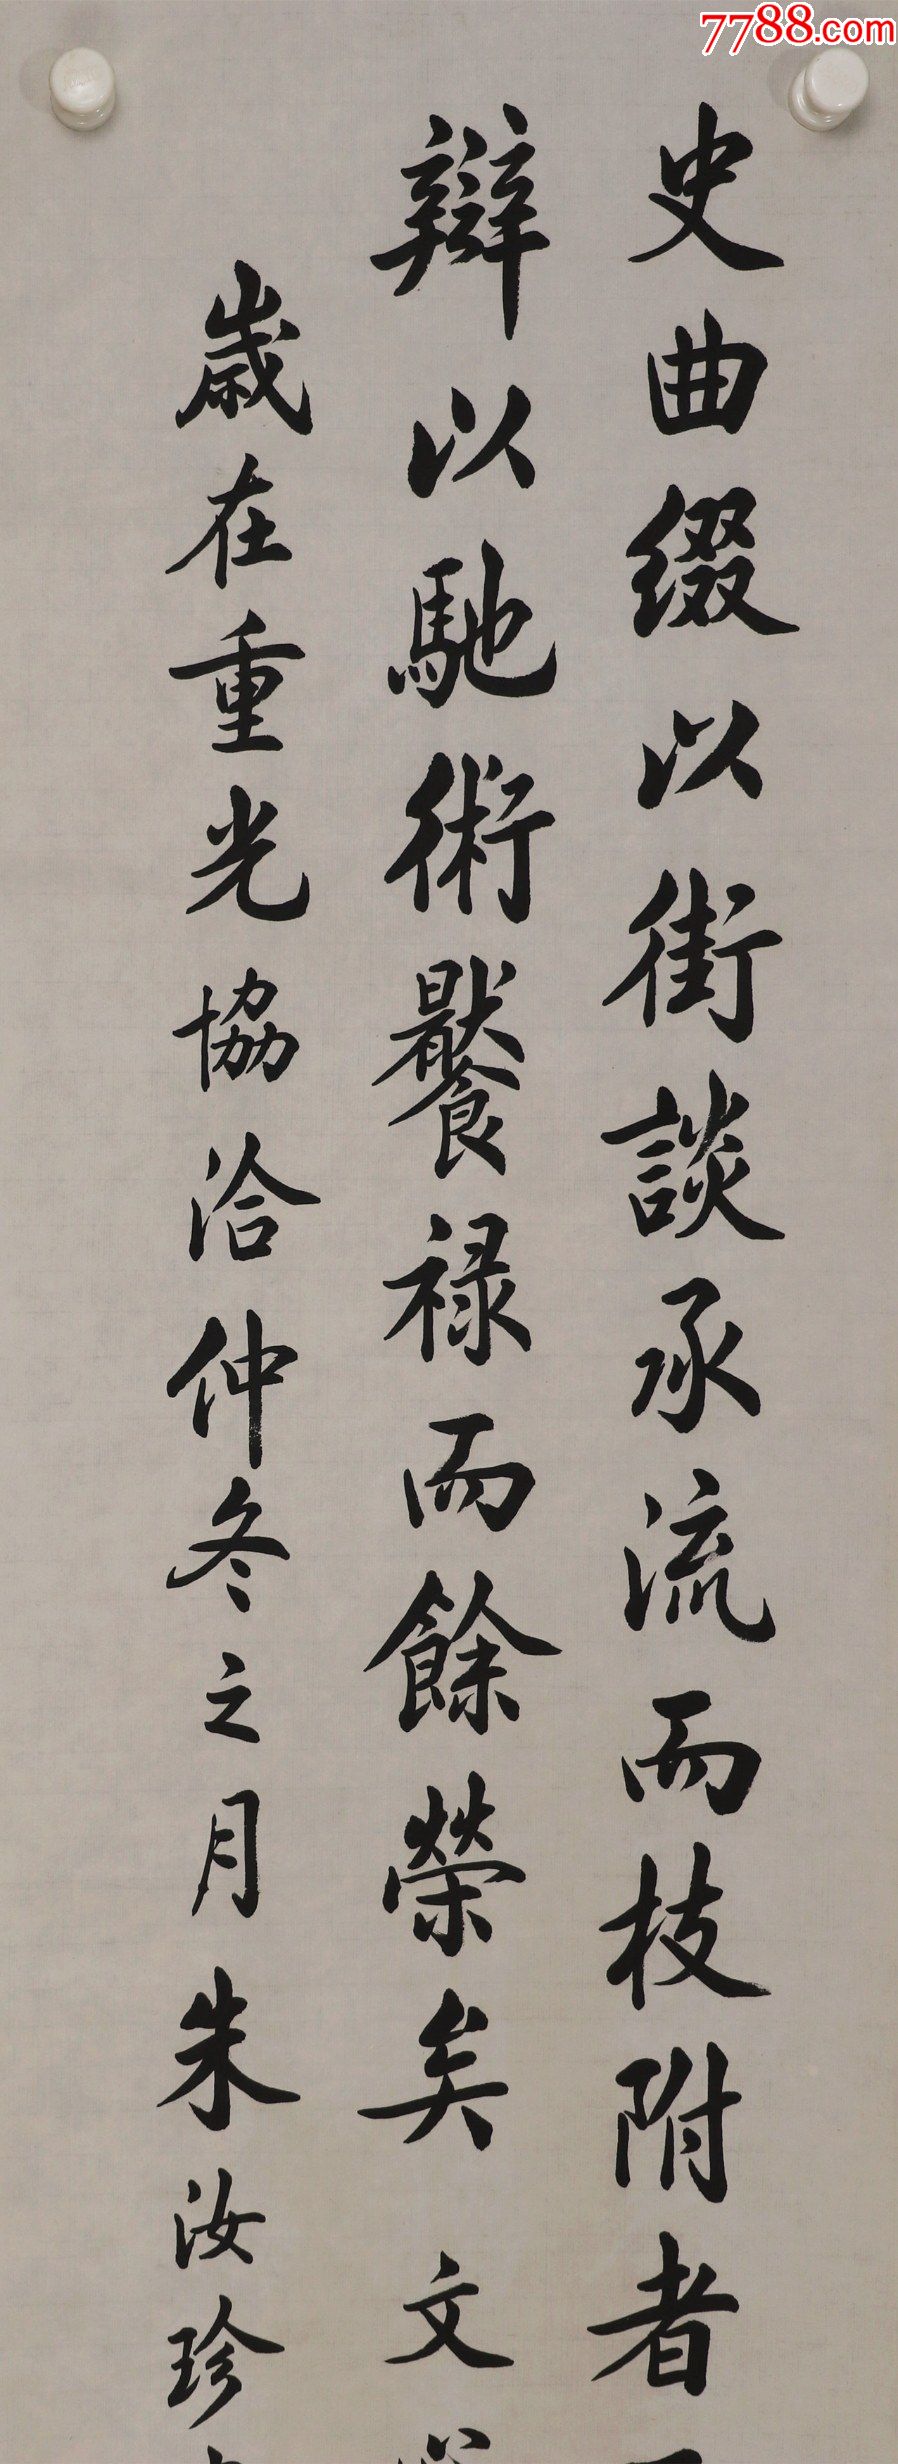 7788.com
史曲缀以街談承流而枝附者
辯以馳術饕禄而餘榮矣 文
歲在重光協洽仲冬之月朱汝珍